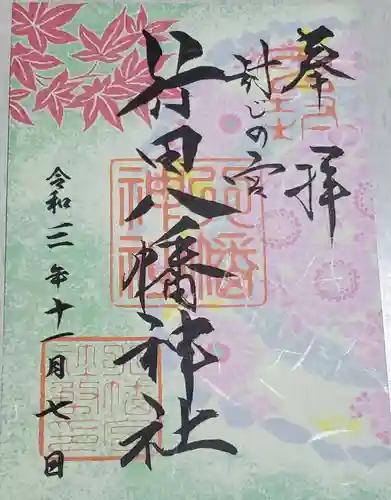 奉拝
封じの宮
行田八幡神社
令和三年十一月七日